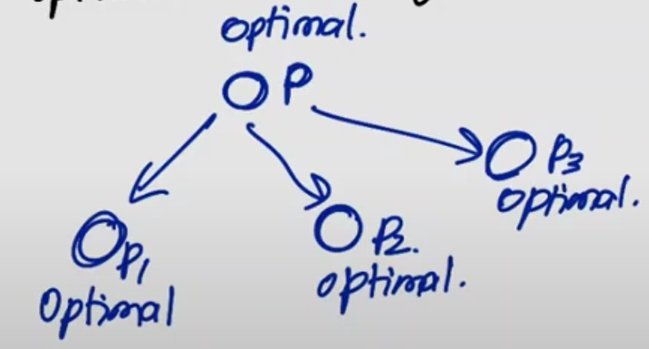 optimal.
P
P3
optimal.
P1
Optimal
P2.
optimal.